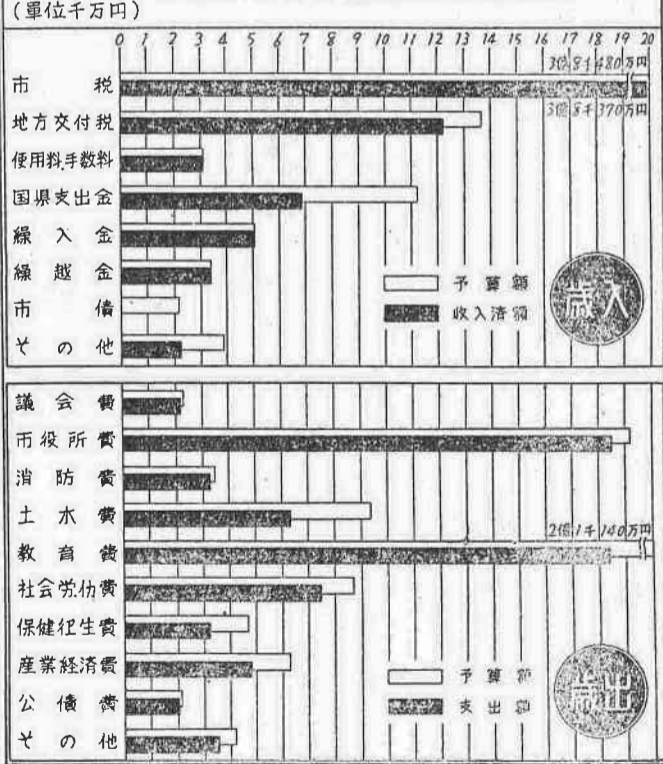 (単位千万円)
0 1 2 3 4 5 6 7 8 9 10 11 12 13 14 15 16 17 18 19 20
3億8千480万円
市税
3億8千370万円
地方交付税
使用料手数料
国県支出金
繰入金
繰越金
市債
その他
予算額
収入済額
歳入
議会費
市役所費
消防費
土木費
2億1千140万円
教育費
社会労仂費
保健衛生費
産業経済費
公債費
その他
予算額
支出額
歳出